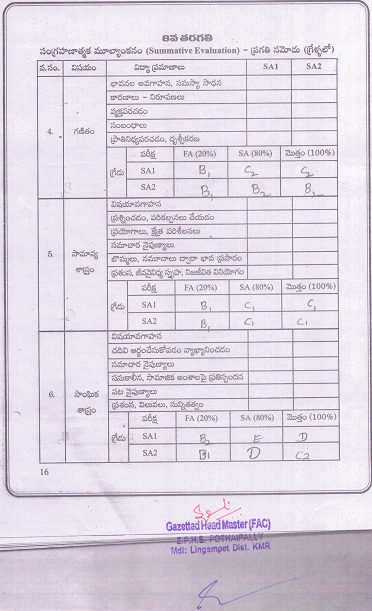 8వ తరగతి
సంగ్రహణాత్మక మూల్యాంకనం (Summative Evaluation) – ప్రగతి నమోదు (గ్రేళ్ళలో)
వ.సం. విషయం విద్యా ప్రమాణాలు SA1 SA2
4. గణితం
భావనల అవగాహన, సమస్యా సాధన
కారణాలు – నిరూపణలు
వ్యక్తపరచడం
సంబంధాలు
ప్రాతినిధ్యపరచడం, దృశ్యీకరణ
గ్రేడు పరీక్ష FA (20%) SA (80%) మొత్తం (100%)
SA1 B1 C2 C2
SA2 B1 B2 B2
5. సామాన్య శాస్త్రం
విషయావగాహన
ప్రశ్నించడం, పరికల్పనలు చేయడం
ప్రయోగాలు, క్షేత్ర పరిశీలనలు
సమాచార నైపుణ్యాలు
బొమ్మలు, నమూనాలు ద్వారా భావ ప్రసారం
ప్రశంస, జీవవైవిధ్య స్పృహ, నిజజీవిత వినియోగం
గ్రేడు పరీక్ష FA (20%) SA (80%) మొత్తం (100%)
SA1 B1 C1 C1
SA2 B1 C1 C1
6. సాంఘిక శాస్త్రం
విషయావగాహన
చదివి అర్థంచేసుకోవడం వ్యాఖ్యానించడం
సమాచార నైపుణ్యాలు
సమకాలీన, సామాజిక అంశాలపై ప్రతిస్పందన
పట నైపుణ్యాలు
ప్రశంస, విలువలు, సున్నితత్వం
గ్రేడు పరీక్ష FA (20%) SA (80%) మొత్తం (100%)
SA1 B2 E D
SA2 B1 D C2
16
Gazettad Head Master (FAC)
Z.P.H.S. POTHAIPALLY
Mdl: Lingampet Dist. KMR